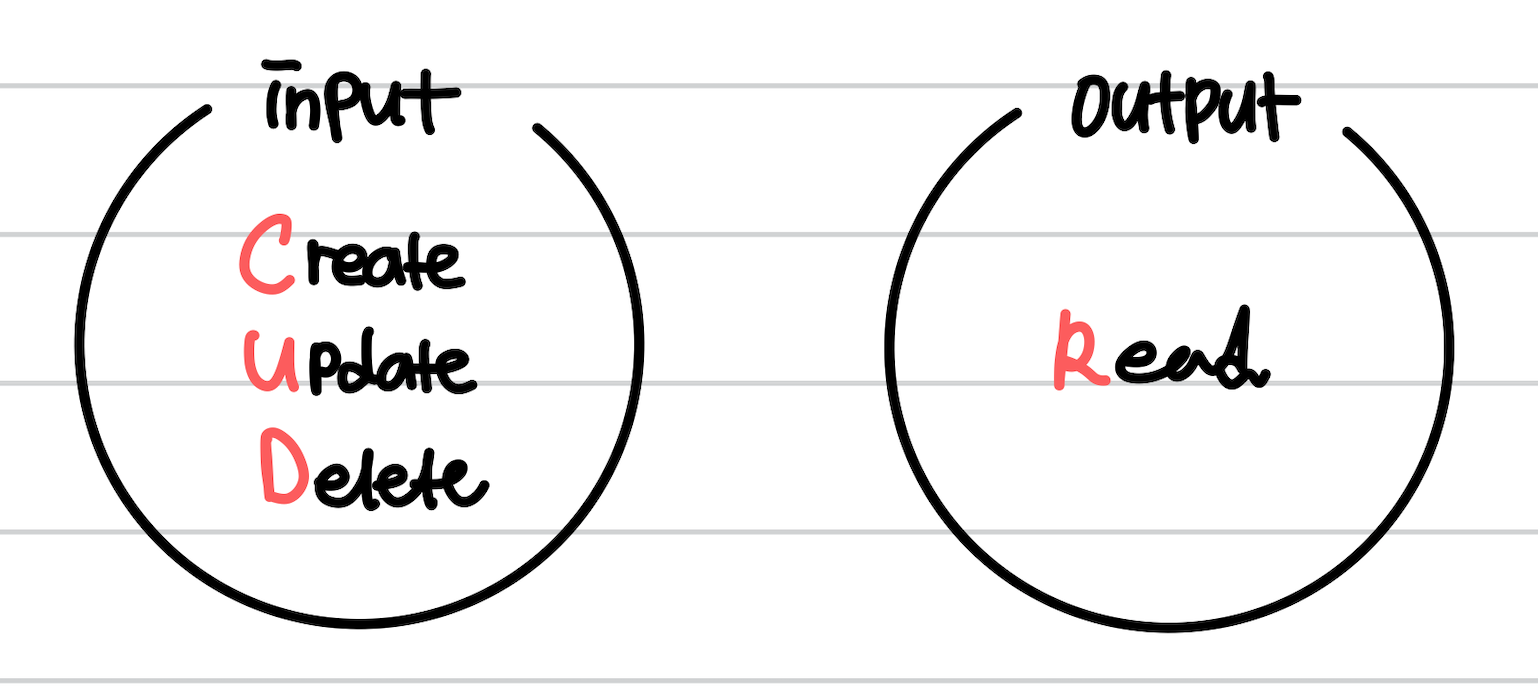 input
Create
Update
Delete
output
Read